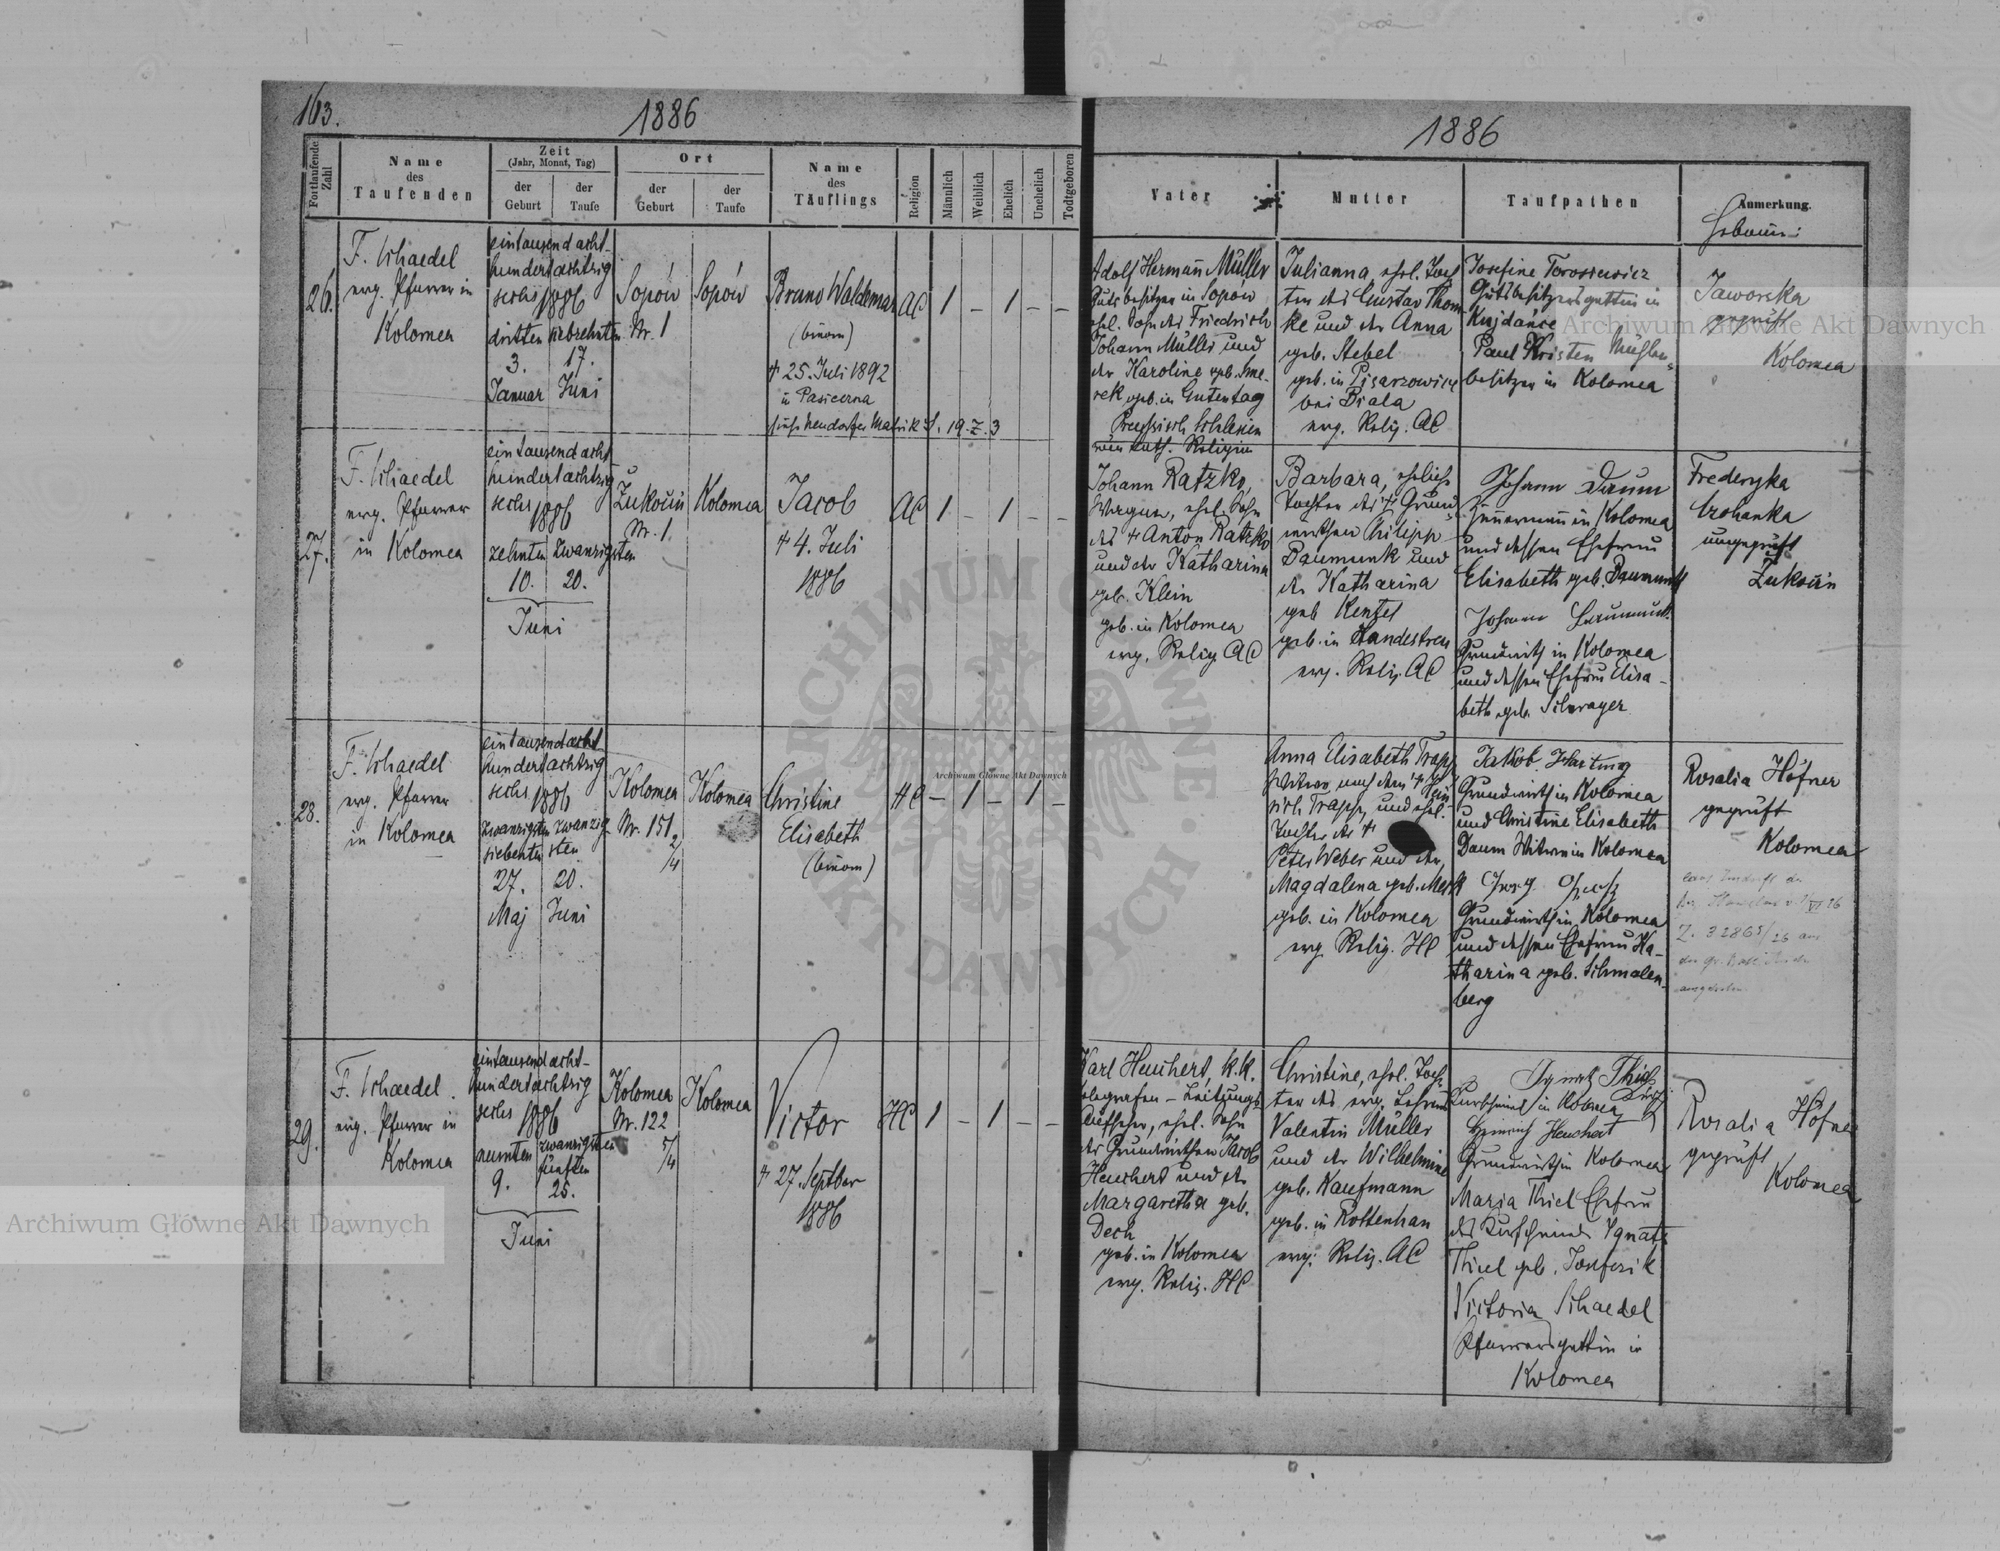 163.
1886
1886
Fortlaufende Zahl
Name des Taufenden
Zeit
(Jahr, Monat, Tag)
der Geburt
der Taufe
Ort
der Geburt
der Taufe
Name des Täuflings
Religion
Männlich
Weiblich
Ehelich
Unehelich
Todtgeboren
Vater
Mutter
Taufpathen
Anmerkung.
26.
F. Schaedel
evg. Pfarrer in
Kolomea
eintausend acht-
hundertachtzig
sechs 1886
dritten siebzehnten
3. 17.
Januar Juni
Sopów
Nr. 1
Sopów
Bruno Waldemar
(binom)
+ 25. Juli 1892
in Pasieczna
AC 1 – 1 – –
Adolf Hermann Müller
Gutsbesitzer in Sopów
ehl. Sohn des Friedrich
Johann Müller und
der Karoline geb.
geb. in Gutentag
Preussisch Schlesien
röm. kath. Religion
Julianna, ehel. Toch
ter des Gustav Thom
ke und der Anna
geb. Stebel
geb. in Pisarzowice
bei Biala
evg. Relig. AC
Josefine Torosiewicz
Gutsbesitzersgattin in
Kujdańce
Paul Kristen Mühlen-
besitzer in Kolomea
Jaworska
geprüft
Kolomea
27.
F. Schaedel
evg. Pfarrer
in Kolomea
eintausend acht
hundertachtzig
sechs 1886
zehnten zwanzigsten
10. 20.
Juni
Żukocin
Nr. 1
Kolomea
Jacob
+ 4. Juli
1886
AC 1 – 1 – –
Johann Ratzko,
Wagner, ehel. Sohn
des + Anton Ratzko
und der Katharina
geb. Klein
geb. in Kolomea
evg. Relig. AC
Barbara, eheliche
Tochter des + Grund-
wirthen Philipp
Baumunk und
der Katharina
geb Kenzel
geb. in Landestreu
evg. Relig. AC
Johann Daum
in Kolomea
und dessen Ehefrau
Elisabeth geb. Baumunk
Johann Baumunk
Grundwirth in Kolomea
und dessen Ehefrau Elisa-
beth geb. Schwager
Frederyka
ungeprüft
Żukocin
28.
F. Schaedel
evg. Pfarrer
in Kolomea
eintausend acht
hundert achtzig
sechs 1886
zwanzigsten zwanzig-
siebenten sten
27. 20.
Maj Juni
Kolomea
Nr. 151
2/4
Kolomea
Christine
Elisabeth
(binom)
HC – 1 – 1 –
Anna Elisabeth Trapp
Witwe nach dem + Hein
rich Trapp, und ehel.
Tochter des +
Peter Weber und der
Magdalena geb. Merk
geb. in Kolomea
evg. Relig. HC
Jakob Hartung
Grundwirth in Kolomea
und Christine Elisabeth
Daum Witwe in Kolomea
Grundwirth in Kolomea
und dessen Ehefrau Ka-
tharina geb. Schmalen-
berg
Rosalia Höfner
geprüft
Kolomea
29.
F. Schaedel
evg. Pfarrer in
Kolomea
eintausend acht-
hundertachtzig
sechs 1886
neunten zwanzigsten
fünften
9. 25.
Juni
Kolomea
Nr. 122
5/4
Kolomea
Victor
+ 27. Septber
1886
HC 1 – 1 – –
Karl Heuchert, k.k.
Telegrafen-Leitungs-
Aufseher, ehel. Sohn
des Grundwirthen Jacob
Heuchert und der
Margaretha geb.
Dech
geb. in Kolomea
evg. Relig. HC
Christine, ehel. Toch-
ter des evg. Lehrers
Valentin Müller
und der Wilhelmine
geb. Kaufmann
geb. in Rottenhan
evg. Relig. AC
Ignatz Thiel
Kurschmied in Kolomea
Heinrich Heuchert
Grundwirth in Kolomea
Maria Thiel Ehefrau
des Kurschmieds Ignatz
Thiel geb.
Victoria Schaedel
Pfarrersgattin in
Kolomea
Rosalia Höfner
geprüft
Kolomea
Archiwum Główne Akt Dawnych
Archiwum Główne Akt Dawnych
Archiwum Główne Akt Dawnych
ARCHIWUM GŁÓWNE AKT DAWNYCH